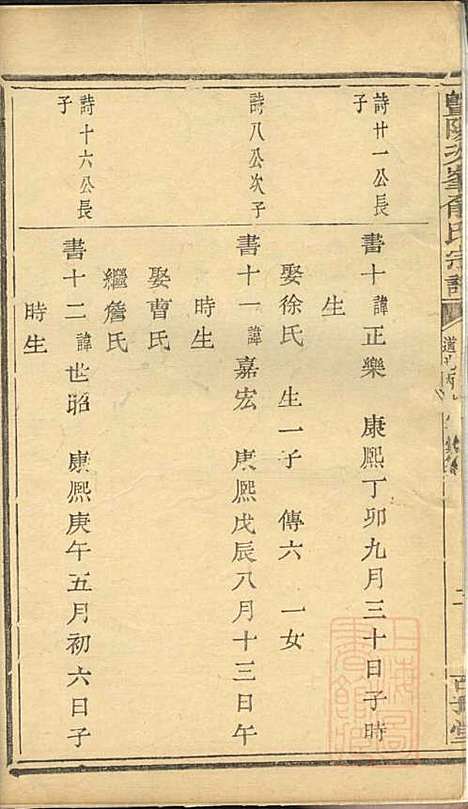 暨陽次峯俞氏宗譜
詩廿一公長
子
書十 諱正樂 康熙丁卯九月三十日子時
生
娶徐氏 生一子 傳六 一女
詩八公次子
書十一 諱嘉宏 康熙戊辰八月十三日午
時生
娶曹氏
繼詹氏
詩十六公長
子
書十二 諱世昭 康熙庚午五月初六日子
時生